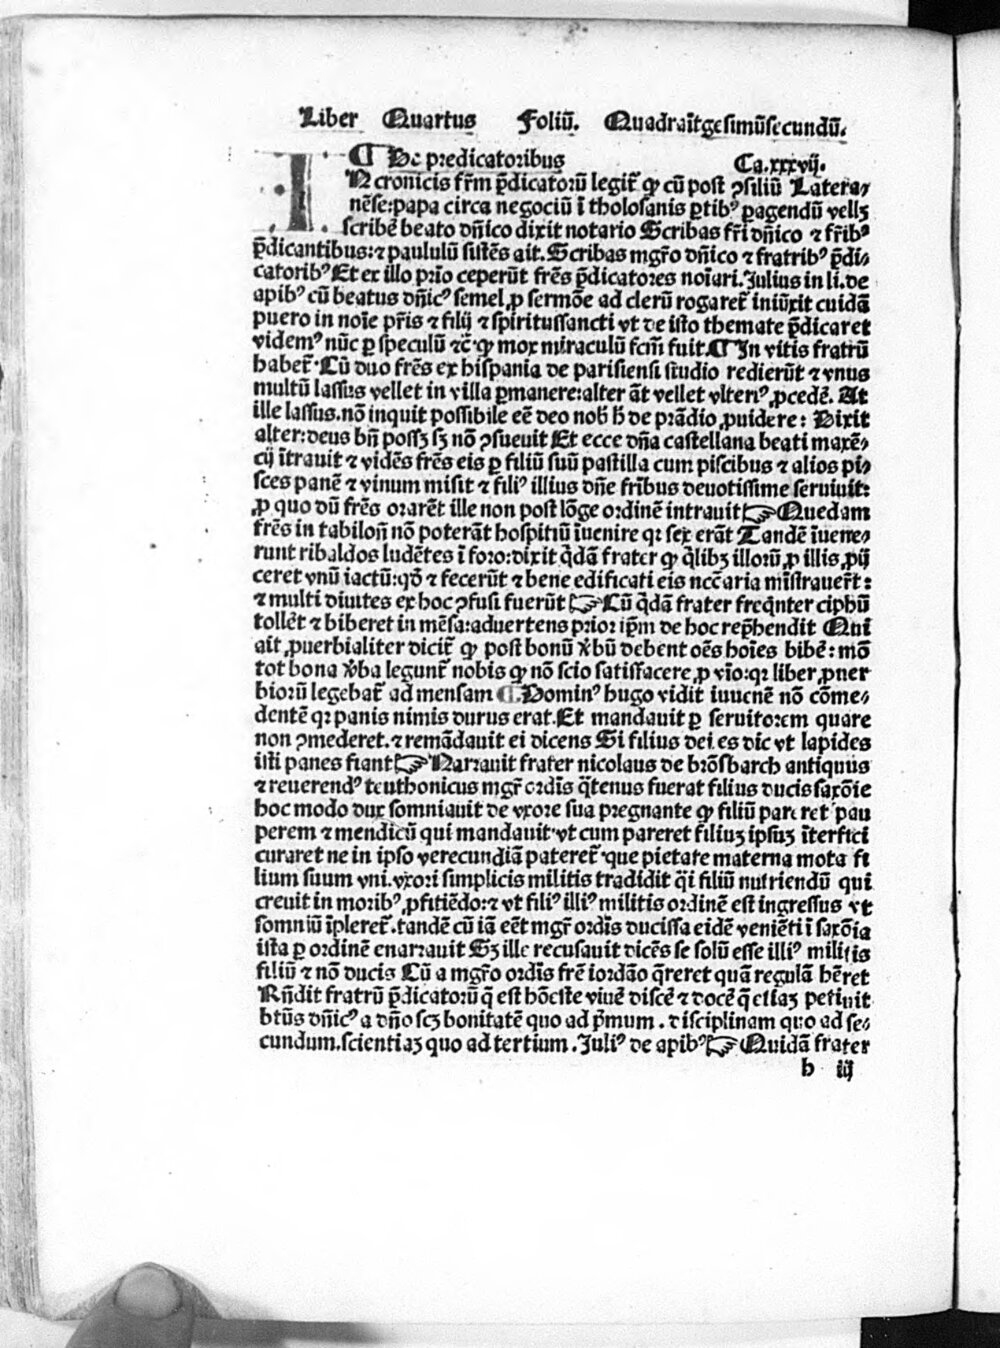 Liber Quartus Foliū. Quadraĩtgesimūsecundū.
¶ De predicatoribus Ca.xxxvij.
IN cronicis fr̄m p̄dicatorū legit᷑ ꝙ cū post ꝯsiliū Latera⸗
nēse:papa circa negociū ĩ tholosanis ꝑtibꝰ ꝑagendū vellꝫ
scribē beato dn̄ico dixit notario Scribas fr̄i dn̄ico ⁊ fr̄ibꝰ
p̄dicantibus:⁊ paululū sistēs ait.Scribas mgr̄o dn̄ico ⁊ fratribꝰ p̄di⸗
catoribꝰ Et ex illo p̄rio ceperūt frēs p̄dicatores noīari.Julius in li.de
apibꝰ cū beatus dn̄icꝰ semel ꝓ sermōe ad clerū rogaret᷑ iniūxit cuidā
puero in noīe pr̄is ⁊ filij ⁊ spiritussancti vt de isto themate p̄dicaret
videmꝰ nūc ꝑ speculū ⁊c̄ ꝙ mox miraculū fcm̄ fuit.¶ In vitis fratrū
habet᷑ Cū duo frēs ex hispania de parisiensi studio redierūt ⁊ vnus
multū lassus vellet in villa ꝑmanere:alter āt vellet vlteriꝰ ꝓcedē. At
ille lassus.nō inquit possibile eē deo nob̄ h̄ de prādio ꝓuidere: Dixit
alter:deus bn̄ possꝫ sꝫ nō ꝯsueuit Et ecce dn̄a castellana beati maxē⸗
cij ītrauit ⁊ vidēs frēs eis ꝑ filiū suū pastilla cum piscibus ⁊ alios pi⸗
sces panē ⁊ vinum misit ⁊ filiꝰ illius dn̄e frībus deuotissime seruiuit:
ꝓ quo dū frēs orarēt ille non post lōge ordinē intrauit ☞ Quedam
frēs in tabiloñ nō poterāt hospitiū īuenire qꝛ sex erāt Tandē īuene⸗
runt ribaldos ludētes ĩ foro:dixit q̄dā frater ꝙ q̄libꝫ illorū ꝓ illis ꝓij
ceret vnū iactū:qđ ⁊ fecerūt ⁊ bene edificati eis nccāria mīstrauer̄t:
⁊ multi diuites ex hoc ꝯfusi fuerūt ☞ Cū q̄dā frater freq̄nter ciphū
tollēt ⁊ biberet in mēsa:aduertens prior ip̄m de hoc rep̄hendit Qui
ait ꝓuerbialiter dicit᷑ ꝙ post bonū v̄bū debent oēs hoīes bibē: mō
tot bona v̄ba legunt᷑ nobis ꝙ nō scio satisfacere ꝓ vīo:qꝛ liber ꝓuer
biorū legebat᷑ ad mensam ¶ Dominꝰ hugo vidit iuuenē nō cōme⸗
dentē qꝛ panis nimis durus erat.Et mandauit ꝑ seruitorem quare
non ꝯmederet.⁊ remādauit ei dicens Si filius dei es dic vt lapides
isti panes fiant ☞ Narrauit frater nicolaus de brōsbarch antiquus
⁊ reuerendꝰ teuthonicus mgr̄ ordis q̄tenus fuerat filius ducis saxōie
hoc modo dux somniauit de vxore sua pregnante ꝙ filiū pareret pau
perem ⁊ mendicū qui mandauit vt cum pareret filiuꝫ ipsuꝫ īterfici
curaret ne in ipso verecundiā pateret᷑ que pietate materna mota fi
lium suum vni.vxori simplicis militis tradidit q̄i filiū nutriendū qui
creuit in moribꝰ ꝓfitiēdo:⁊ vt filiꝰ illiꝰ militis ordinē est ingressus vt
somniū īpleret᷑.tandē cū iā eēt mgr̄ ordis ducissa eidē veniēti ĩ saxōia
ista ꝑ ordinē enarrauit Sꝫ ille recusauit dicēs se solū esse illiꝰ militis
filiū ⁊ nō ducis Cū a mgr̄o ordis frē iordāo q̄reret quā regulā hēret
Rn̄dit fratrū p̄dicatorū q̄ est hōeste viuē discē ⁊ docē q̄ etiaꝫ petiuit
btūs dn̄icꝰ a dn̄o scꝫ bonitatē quo ad p̄mum.disciplinam quo ad se⸗
cundum.scientiaꝫ quo ad tertium.Juliꝰ de apibꝰ ☞ Quidā frater
h iij